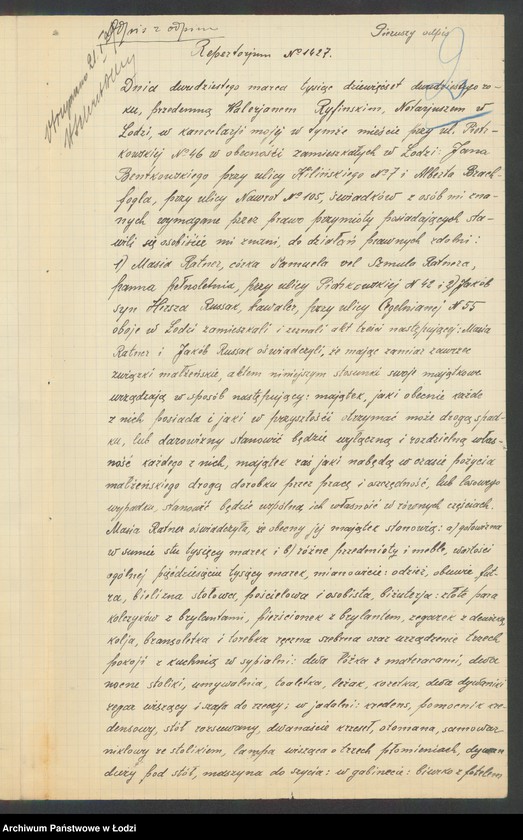 Odpis z odpisu
Pierwszy odpis
Otrzymano 21
Repertorjum № 1427.
Dnia dwudziestego marca tysiąc dziewięćset dwudziestego ro-
ku, przedemną Walerjanem Ryfińskim, Notarjuszem w
Łodzi, w kancelarji mojej w tymże mieście przy ul. Piotr-
kowskiej № 46 w obecności zamieszkałych w Łodzi: Jana
Bentkowskiego przy ulicy Kilińskiego № 7 i Alberta Brach-
fogla, przy ulicy Nawrot № 105, świadków z osób mi zna-
nych wymagane przez prawo przymioty posiadających sta-
wili się osobiście mi znani, do działań prawnych zdolni:
1) Masia Ratner, córka Samuela vel Szmula Ratnera,
panna pełnoletnia, przy ulicy Piotrkowskiej № 42 i 2) Jakób
syn Hersza Russak, kawaler, przy ulicy Cegielnianej № 55
oboje w Łodzi zamieszkali i zeznali akt treści następującej: Masia
Ratner i Jakób Russak oświadczyli, że mając zamiar zawrzeć
związki małżeńskie, aktem niniejszym stosunki swoje majątkowe
urządzają w sposób następujący: majątek, jaki obecnie każde
z nich posiada i jaki w przyszłości otrzymać może drogą spad-
ku, lub darowizny stanowić będzie wyłączną i rozdzielną włas-
ność każdego z nich, majątek zaś jaki nabędą w czasie pożycia
małżeńskiego drogą dorobku przez pracę i oszczędność, lub losowego
wypadku, stanowić będzie wspólną ich własność w równych częściach.
Masia Ratner oświadczyła, że obecny jej majątek stanowią: a) gotowizna
w sumie stu tysięcy marek i b) różne przedmioty i meble, wartości
ogólnej pięćdziesięciu tysięcy marek, mianowicie: odzież, obuwie fut-
ra, bielizna stołowa, pościelowa i osobista, biżuterja: złote para
kolczyków z brylantami, pierścionek z brylantem, zegarek z dewizką
kolja, bransoletka i torebka ręczna srebrna oraz urządzenie trzech
pokoji z kuchnią w sypialni: dwa łóżka z materacami, dwa
nocne stoliki, umywalnia, toaletka, leżak, kozetka, dwa dywaniki
zegar wiszący i szafa do rzeczy; w jadalni: kredens, pomocnik kre-
densowy, stół rozsuwany, dwanaście krzeseł, otomana, samowar
niklowy ze stolikiem, lampa wisząca o trzech płomieniach, dywan
duży pod stół, maszyna do szycia: w gabinecie: biurko z fotelem
Archiwum Państwowe w Łodzi